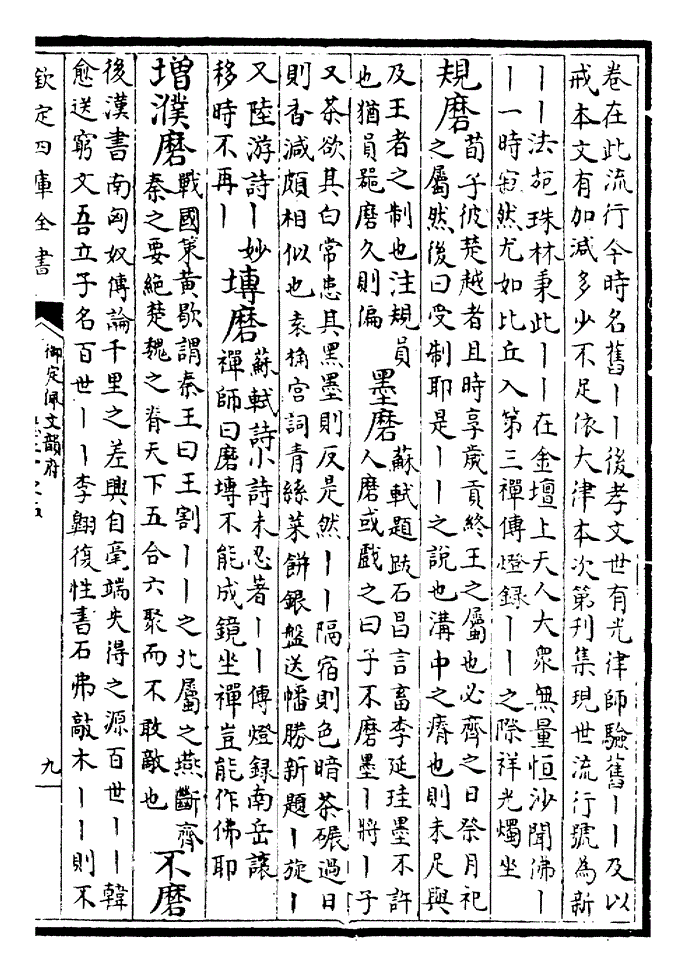 卷在此流行今時名舊丨丨後孝文世有光律師驗舊丨丨及以
戒本文有加減多少不足依大律本次第刊集現世流行號為新
丨丨法苑珠林秉此丨丨在金壇上天人大衆無量恒沙聞佛丨
丨一時寂然尤如比丘入第三禪傳燈録丨丨之際祥光燭坐
規磨
荀子彼楚越者且時享歲貢終王之屬也必齊之日祭月祀
之屬然後曰受制耶是丨丨之說也溝中之瘠也則未足與
及王者之制也注規員
也猶員噐磨久則偏
墨磨
蘇軾題跋石昌言畜李廷珪墨不許
人磨或戲之曰子不磨墨丨將丨子
又茶欲其白常患其黑墨則反是然丨丨隔宿則色暗茶碾過日
則香減頗相似也袁桷宮詞青絲菜餅銀盤送幡勝新題丨旋丨
又陸游詩丨妙
移時不再丨
塼磨
蘇軾詩小詩未忍著丨丨傳燈録南岳讓
禪師曰磨塼不能成鏡坐禪豈能作佛耶
增濮磨
戰國策黄歇謂秦王曰王割丨丨之北屬之燕斷齊
秦之要絕楚魏之脊天下五合六聚而不敢敵也
不磨
後漢書南匈奴傳論千里之差興自毫端失得之源百世丨丨韓
愈送窮文吾立子名百世丨丨李翺復性書石弗敲木丨丨則不
欽定四庫全書
御定佩文韻府
九